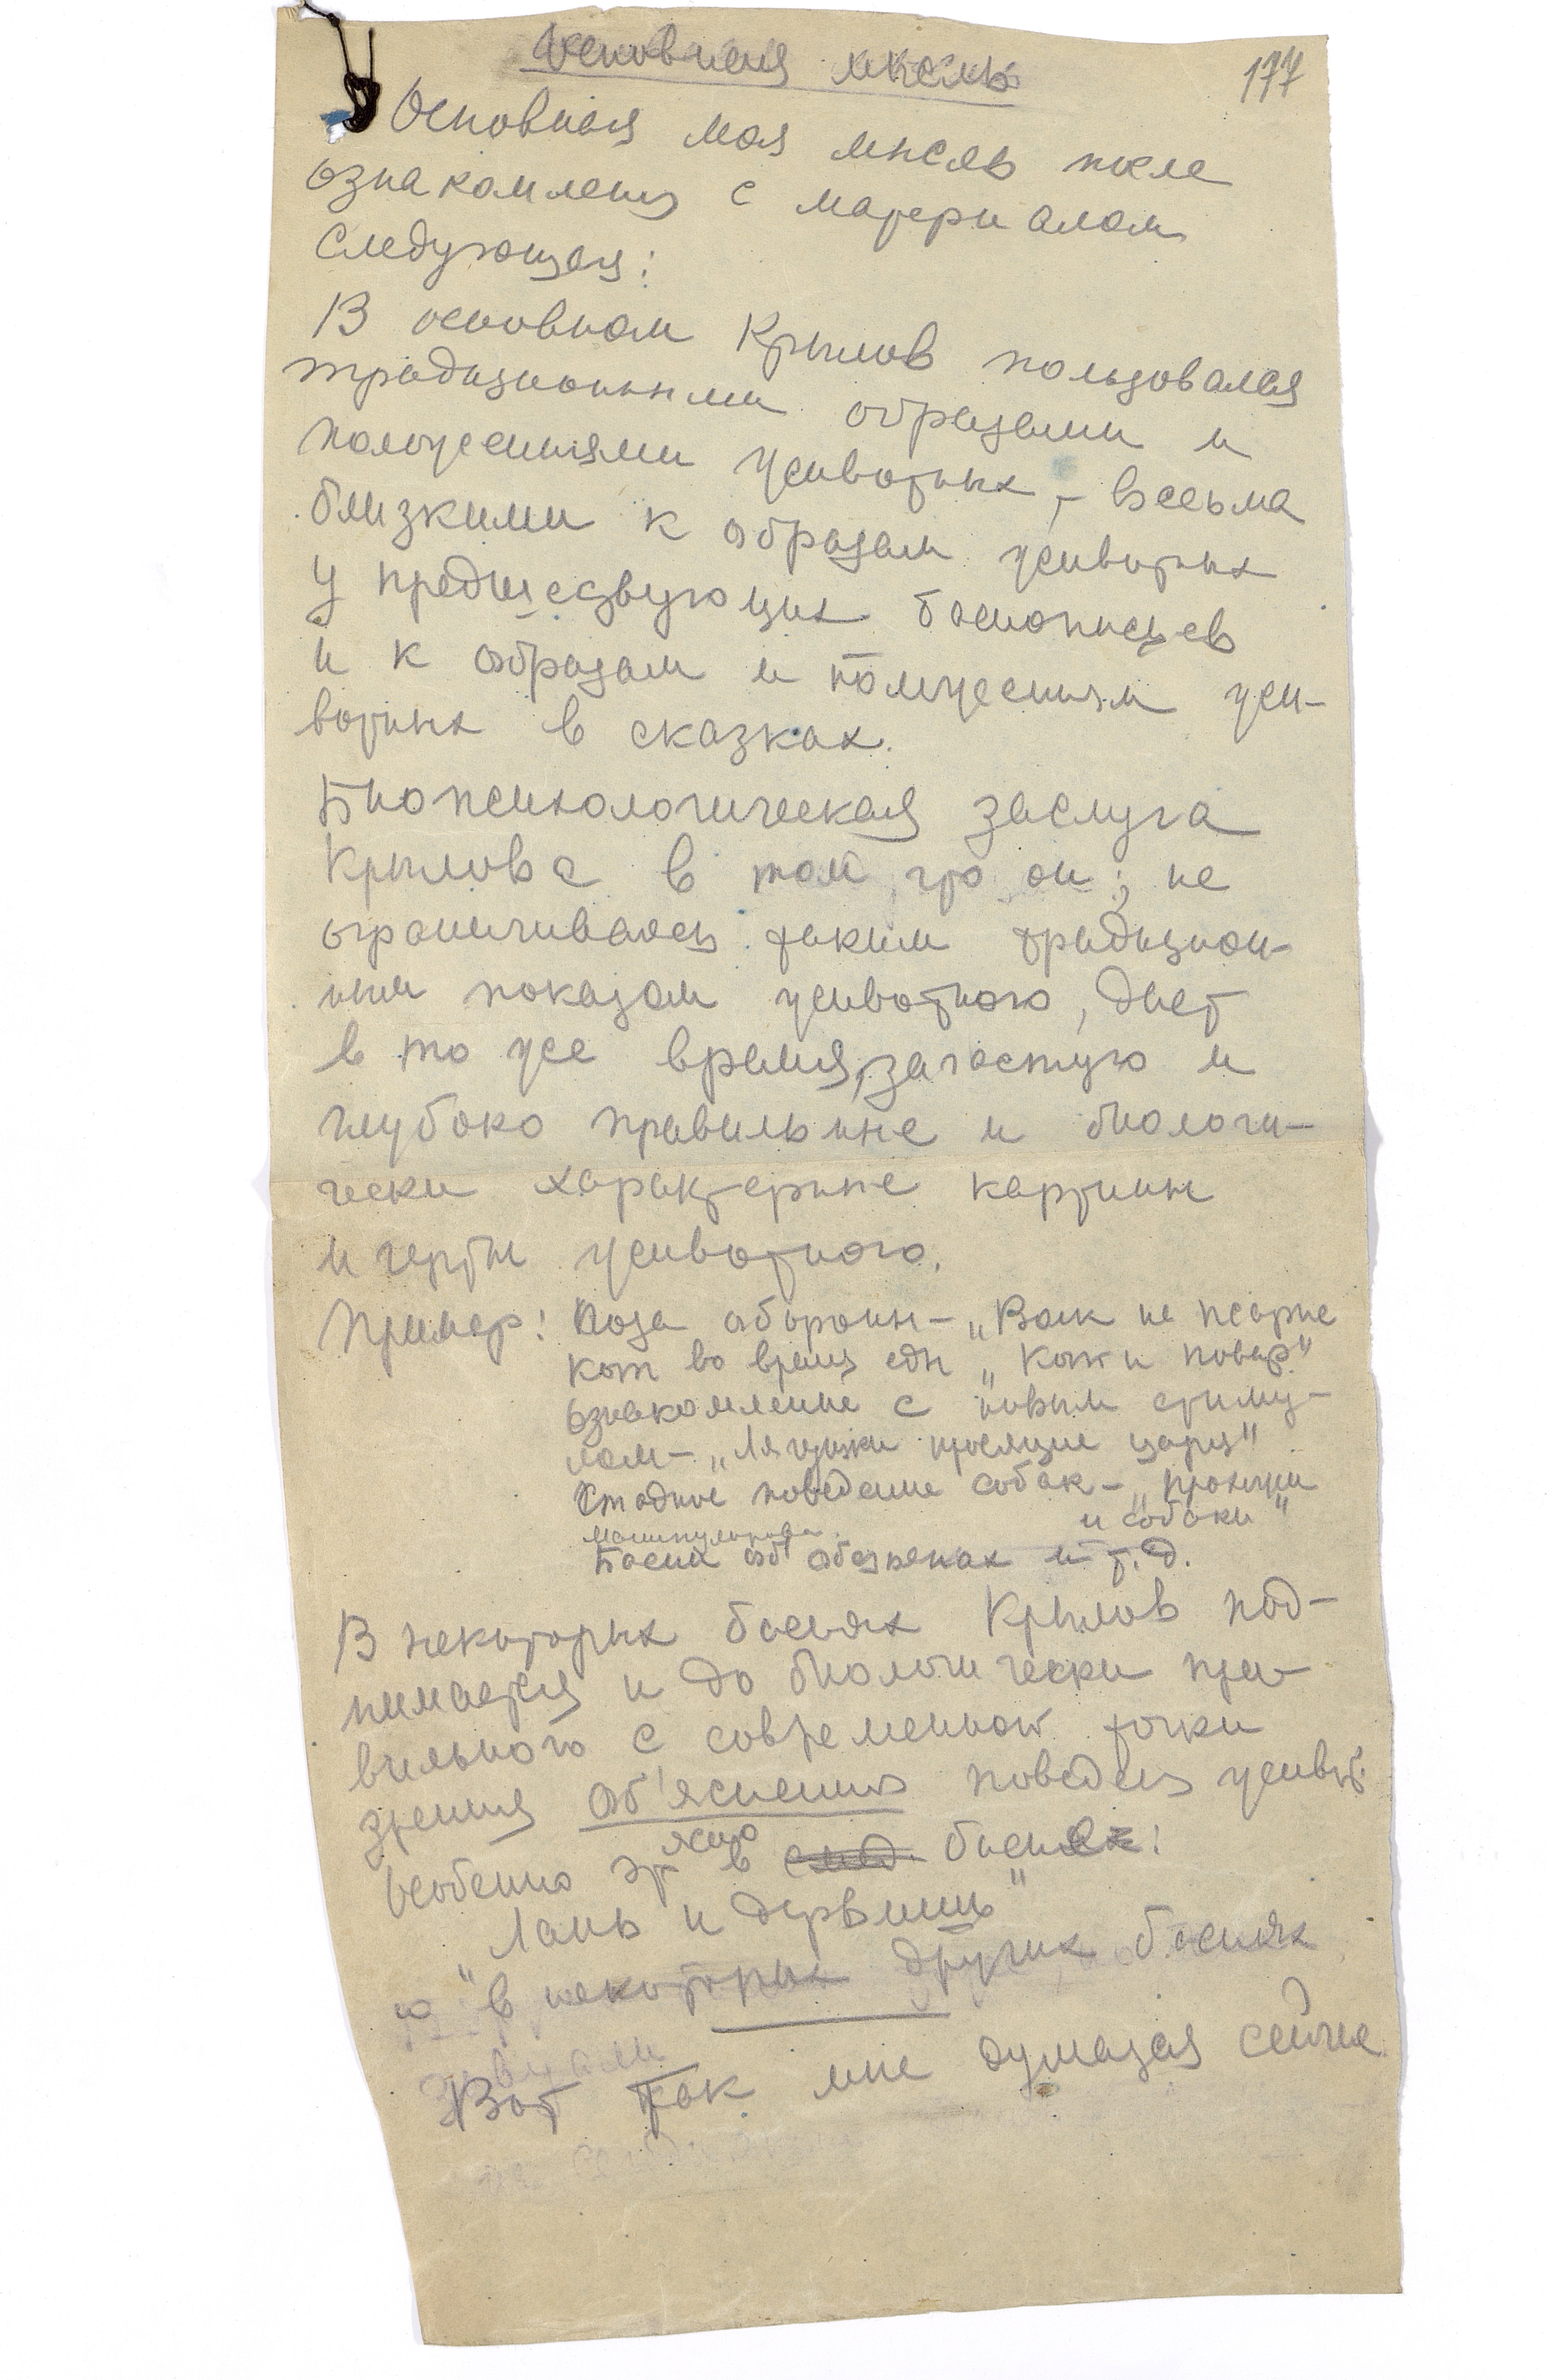 Основная мысль
177
Основная моя мысль после
ознакомления с материалом
следующая:
В основном Крылов пользовался
традиционными образами и
положениями животных, – весьма
близкими к образам животных
у предшествующих баснописцев
и к образам и положениям жи-
вотных в сказках.
Биопсихологическая заслуга
Крылова в том, что он, не
ограничиваясь таким традицион-
ным показом животного, дает
в то же время, зачастую и
глубоко правильные и биологи-
чески характерные картины
и черты животного.
Пример: Поза обороны – „Волк на псарне
кот во время еды „Кот и повар"
ознакомление с новым стиму-
лом – „Лягушки просящие царя"
Стадное поведение собак – „Прохожие
и собаки"
Басни об обезьянах и т.д.
В некоторых баснях Крылов под-
нимается и до биологически пра-
вильного с современной точки
зрения об'яснения поведения живот.
Особенно это ясно в след. баснях:
„Лань и дервиш"
и в некоторых других баснях
Вот так мне думается сейчас